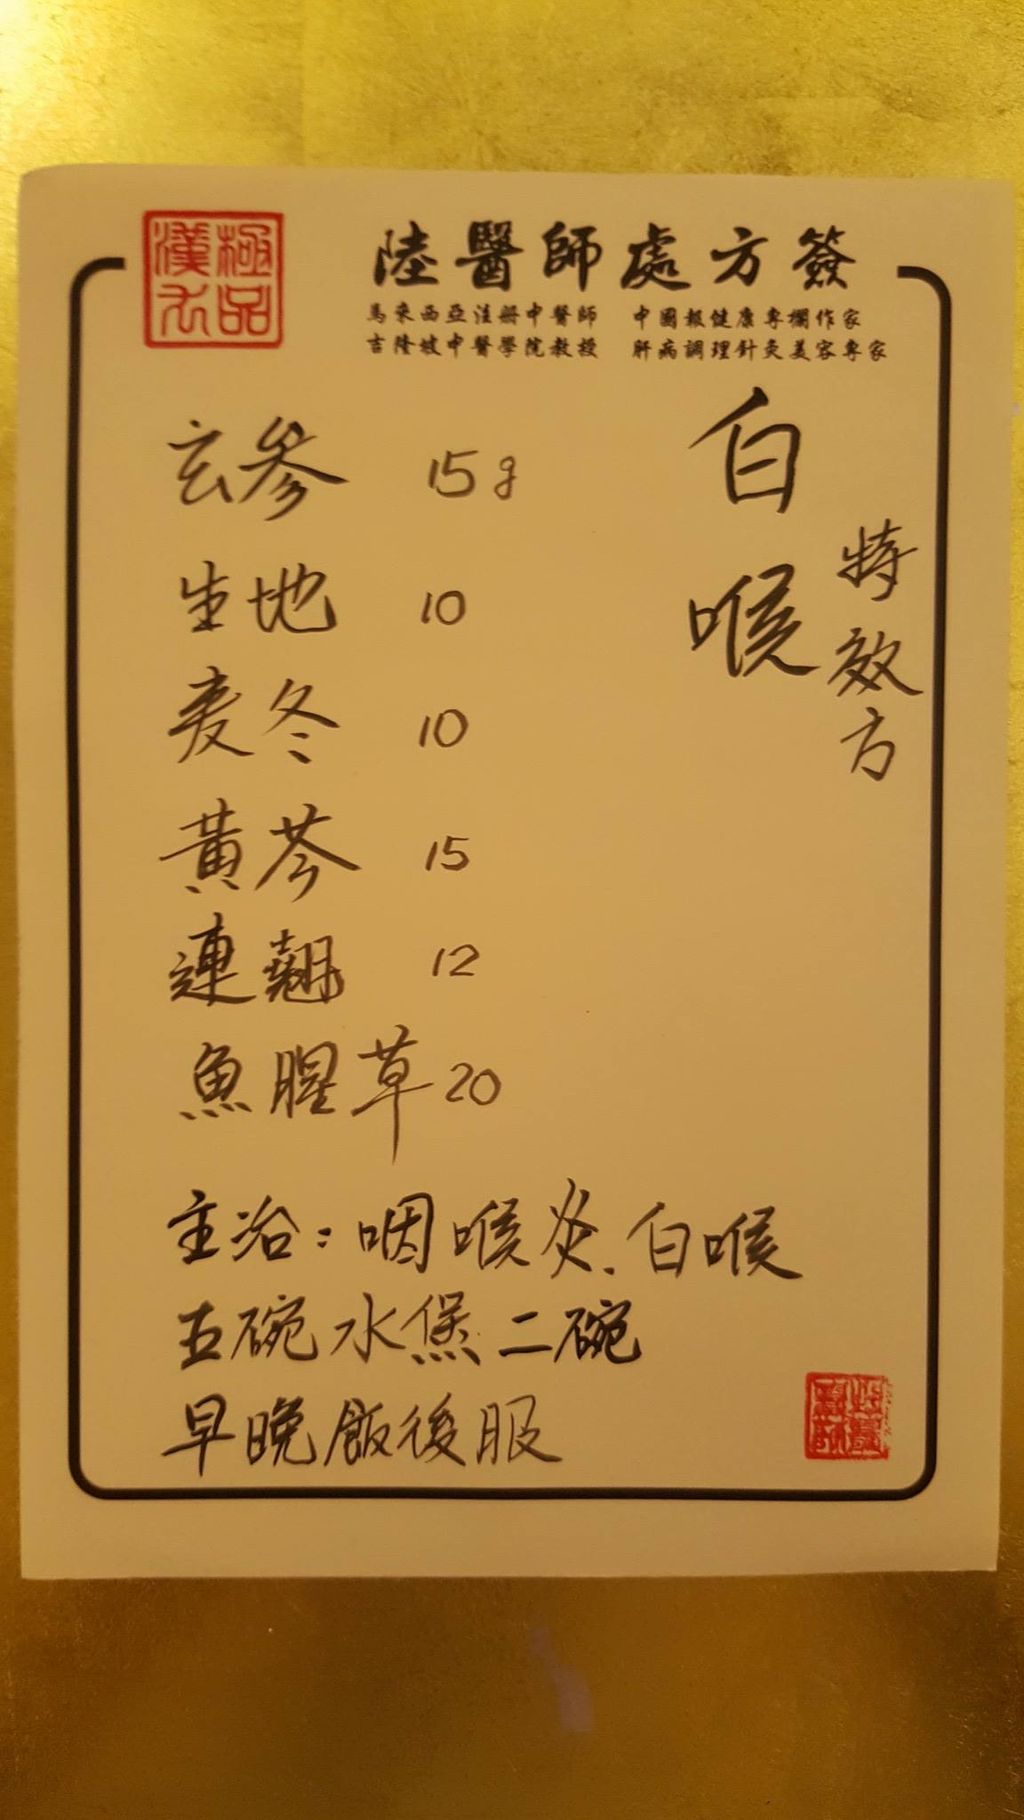 極品
漢方
陸醫師處方簽
馬來西亞注册中醫師 中國報健康專欄作家
吉隆坡中醫學院教授 肝病調理針灸美容專家
白喉
特效方
玄參 15g
生地 10
麦冬 10
黃芩 15
連翹 12
魚腥草 20
主治：咽喉炎.白喉
五碗水煲二碗
早晚飯後服